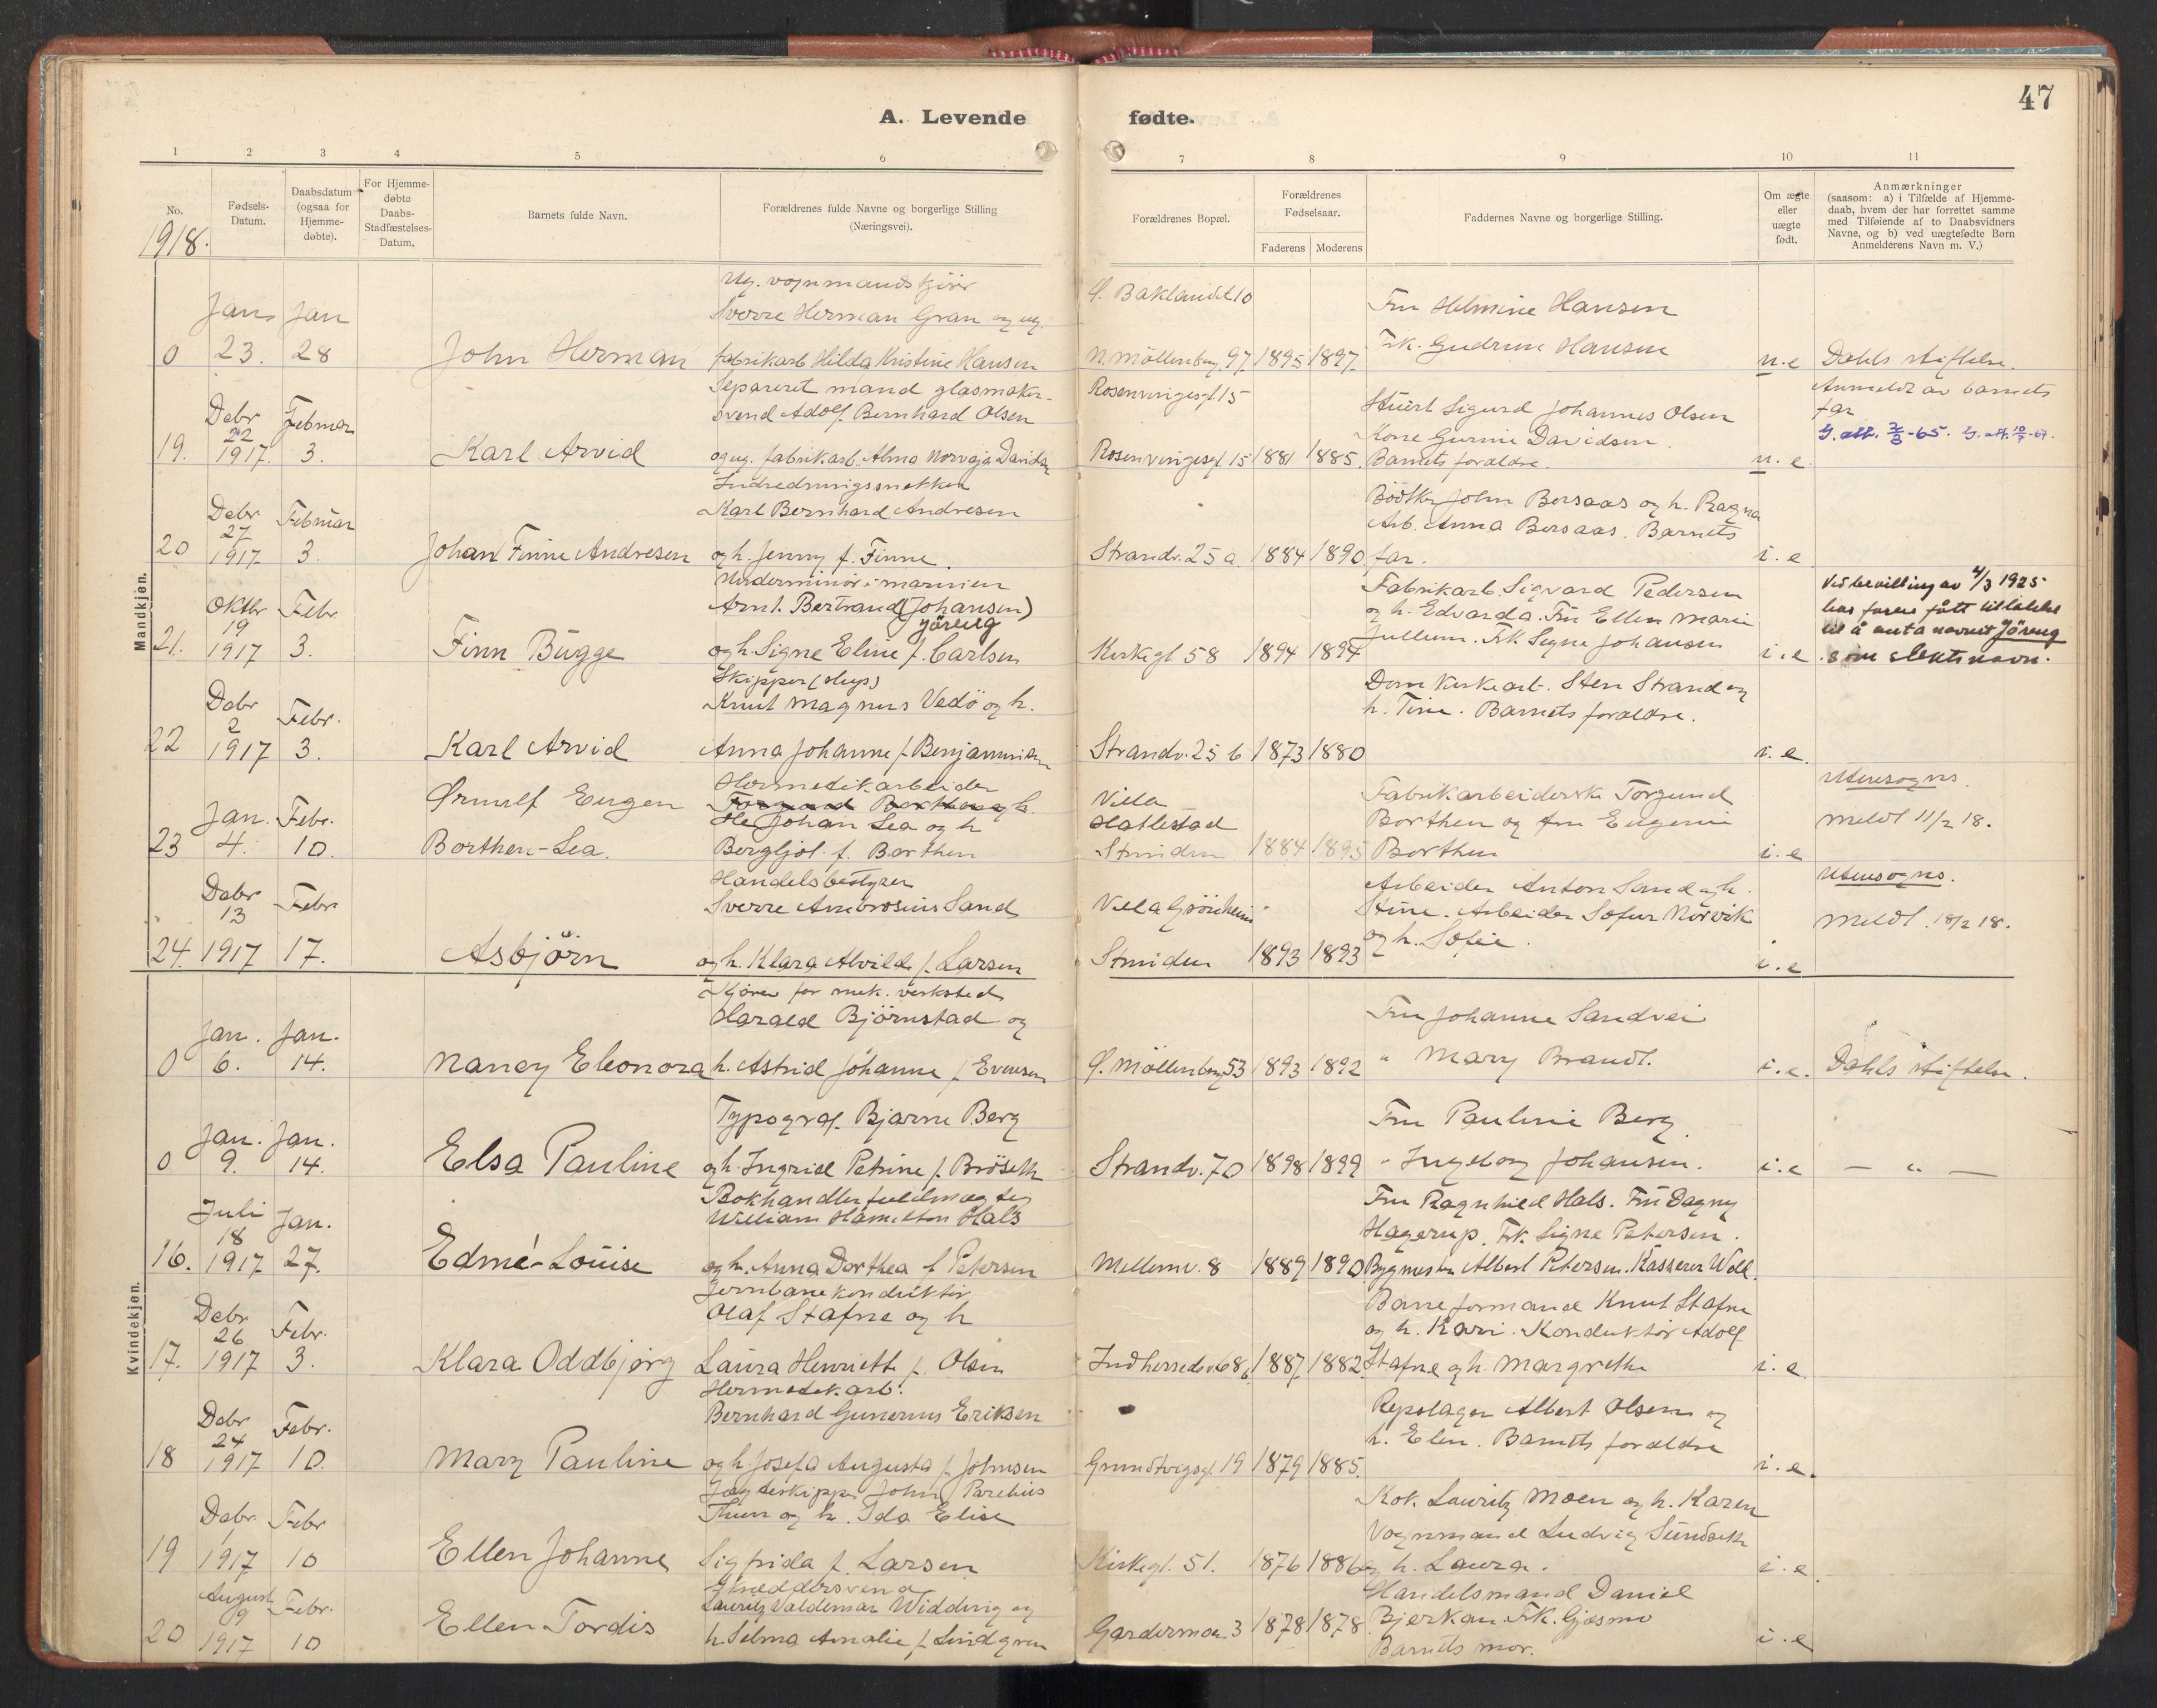 47
A. Levende fødte.
1 2 3 4 5 6 7 8 9 10 11
No.
1918.
Fødsels-
Datum.
Daabsdatum
(ogsaa for
Hjemme-
døbte).
For Hjemme-
døbte
Daabs-
Stadfæstelses-
Datum.
Barnets fulde Navn.
Forældrenes fulde Navne og borgerlige Stilling
(Næringsvei).
Forældrenes Bopæl.
Forældrenes
Fødselsaar.
Faderens Moderens
Faddernes Navne og borgerlige Stilling.
Om ægte
eller
uægte
født.
Anmærkninger
(saasom: a) i Tilfælde af Hjemme-
daab, hvem der har forrettet samme
med Tilføiende af to Daabsvidners
Navne, og b) ved uægtefødte Børn
Anmelderens Navn m. V.)
Mandkjøn.
0
Jan 23.
Jan 28
John Herman
Ug. vognmandskjörer
Sverre Herman Gran og ug.
fabrikarb. Hilda Kristine Hansen
Ö. Baklandet 10
N. Möllenberg 97
1895 1897
Fru Helmine Hansen
Frk. Gudrun Hansen
u.e
Dahls stiftelse.
19.
Debr 22 1917.
Februar 3.
Karl Arvid
Separeret mand glasmaker-
svend Adolf Bernhard Olsen
og ug. fabrikarb. Alma Norvaja Davidsen
Rosenvingesgt 15
Rosenvingesgt. 15
1881 1885.
Stuert Sigurd Johannes Olsen
Kone Gurine Davidsen.
Barnets forældre.
u.e
Anmeldt av barnets
far
20
Debr 27 1917
Februar 3.
Johan Finne Andresen
Indredningssnekker
Karl Bernhard Andresen
og h. Jenny f. Finne.
Strandv. 25 a
1884 1890
Bödtker John Bersaas og h. Ragna
Arb. Anna Bersaas. Barnets
far.
i.e
21.
Oktbr 19 1917
Febr. 3.
Finn Bugge
Underminör i marinen
Arnt. Bertrand (Johansen)
Jöreng
og h. Signe Eline f. Carlsen
Kirkegt 58
1894 1894
Fabrikarb. Sigvard Pedersen
og h. Edvarda. Fru Ellen Marie
Jullum. Frk. Signe Johansen
i.e
Ved bevilling av 4/3 1925
har faren fått tillatelse
til å anta navnet Jöreng
som slektsnavn.
22
Debr 2 1917
Febr. 3.
Karl Arvid
Skipper (slups)
Knut Magnus Vedö og h.
Anna Johanne f. Benjaminsen
Strandv. 25 b
1873 1880
Dom kirkearb. Sten Strand og
h. Tine. Barnets forældre.
i.e.
23
Jan. 4.
Febr. 10.
Ørnulf Eugen
Borthen-Lea.
Hermetikarbeider
Ole Johan Lea og h
Bergljot f. Borthen
Villa
Hallestad
Strinden
1884 1895
Fabrikarbeiderske Torgund
Borthen og fru Eugenie
Borthen
i.e
Utensogns.
Meldt 11/2 18.
24.
Debr 13 1917
Febr 17.
Asbjörn
Handelsbestyrer
Sverre Ambrosius Sand
og h. Klara Alvilde f. Larsen
Villa Grönheim
Strinden
1893 1893
Arbeider Anton Sand og h.
Stine. Arbeider Sofus Nörvik
og h. Sofie.
i.e
Utensogns.
Meldt. 18/2 18.
Kvindekjøn.
0
Jan. 6.
Jan. 14.
Nancy Eleonora
Kjörer for mek. verksted
Harald Björnstad og
h. Astrid Johanne f. Evensen
Ö. Möllenberg 53
1893 1892
Fru Johanne Sandvei
" Mary Brandt.
i.e.
Dahls stiftelse.
0
Jan. 9.
Jan. 14.
Elsa Pauline
Typograf Bjarne Berg
og h. Ingrid Petrine f. Bröseth
Strandv. 70
1898 1899
Fru Pauline Berg.
" Ingeborg Johansen.
i.e
— " —
16.
Juli 18 1917
Jan. 27.
Edmé-Louise
Bokhandlerfuldmægtig
William Hamilton Hals
og h. Anna Dorthea f. Petersen
Mellemv. 8
1889 1890
Fru Ragnhild Hals. Fru Dagny
Hagerup. Frk. Signe Petersen.
Bygmester Albert Petersen. Kasserer Woll.
17.
Debr 26 1917
Febr. 3.
Klara Oddbjørg
Jernbanekonduktör
Olaf Stafne og h
Laura Henriette f. Olsen
Indherredsv. 68 b
1887 1882
Baneformand Knut Stafne
og h. Kari. Konduktör Adolf
Stafne og h. Margrethe
i.e.
18
Debr 24 1917
Febr. 10.
Mary Pauline
Hermetikarb.
Bernhard Gunerius Eriksen
og h. Josefa Augusta f. Johnsen
Grundtvigsgt. 19
1879 1885.
Repslager Albert Olsen og
h. Elen. Barnets forældre
i.e.
19
Debr 1 1917
Febr 10
Ellen Johanne
Jægteskipper John Parelius
Thun og h. Ida Elise
Sigfrida f. Larsen
Kirkegt. 51.
1876 1886
Kok. Lauritz Moen og h. Karen
Vognmand Ludvig Sundseth
og h. Laura.
i.e.
20
August 9 1917
Febr. 10
Ellen Tordis
Skræddersvend
Lauritz Valdemar Widding og
h. Selma Amalie f. Lindgren
Gardermoen 3
1878 1878.
Handelsmand Daniel
Bjerkan. Frk. Gjæsmo
Barnets mor.
i.e